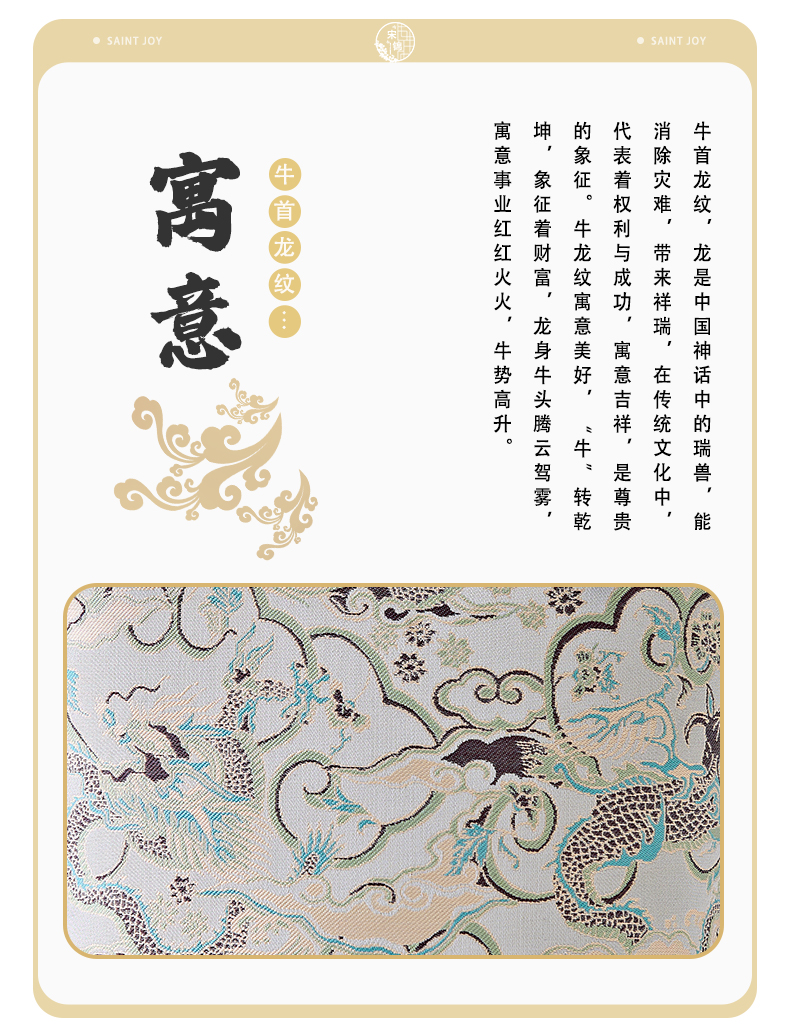 SAINT JOY
宋锦
SAINT JOY
寓意
牛首龙纹…
牛首龙纹，龙是中国神话中的瑞兽，能
消除灾难，带来祥瑞，在传统文化中，
代表着权利与成功，寓意吉祥，是尊贵
的象征。牛龙纹寓意美好，“牛”转乾
坤，象征着财富，龙身牛头腾云驾雾，
寓意事业红红火火，牛势高升。